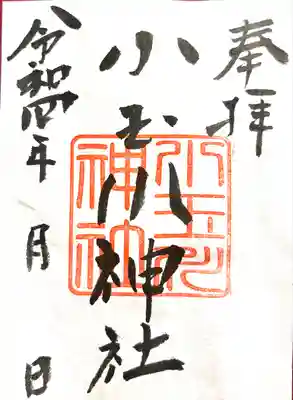 奉拝
小玉川神社
令和四年 月 日
小玉川
神社